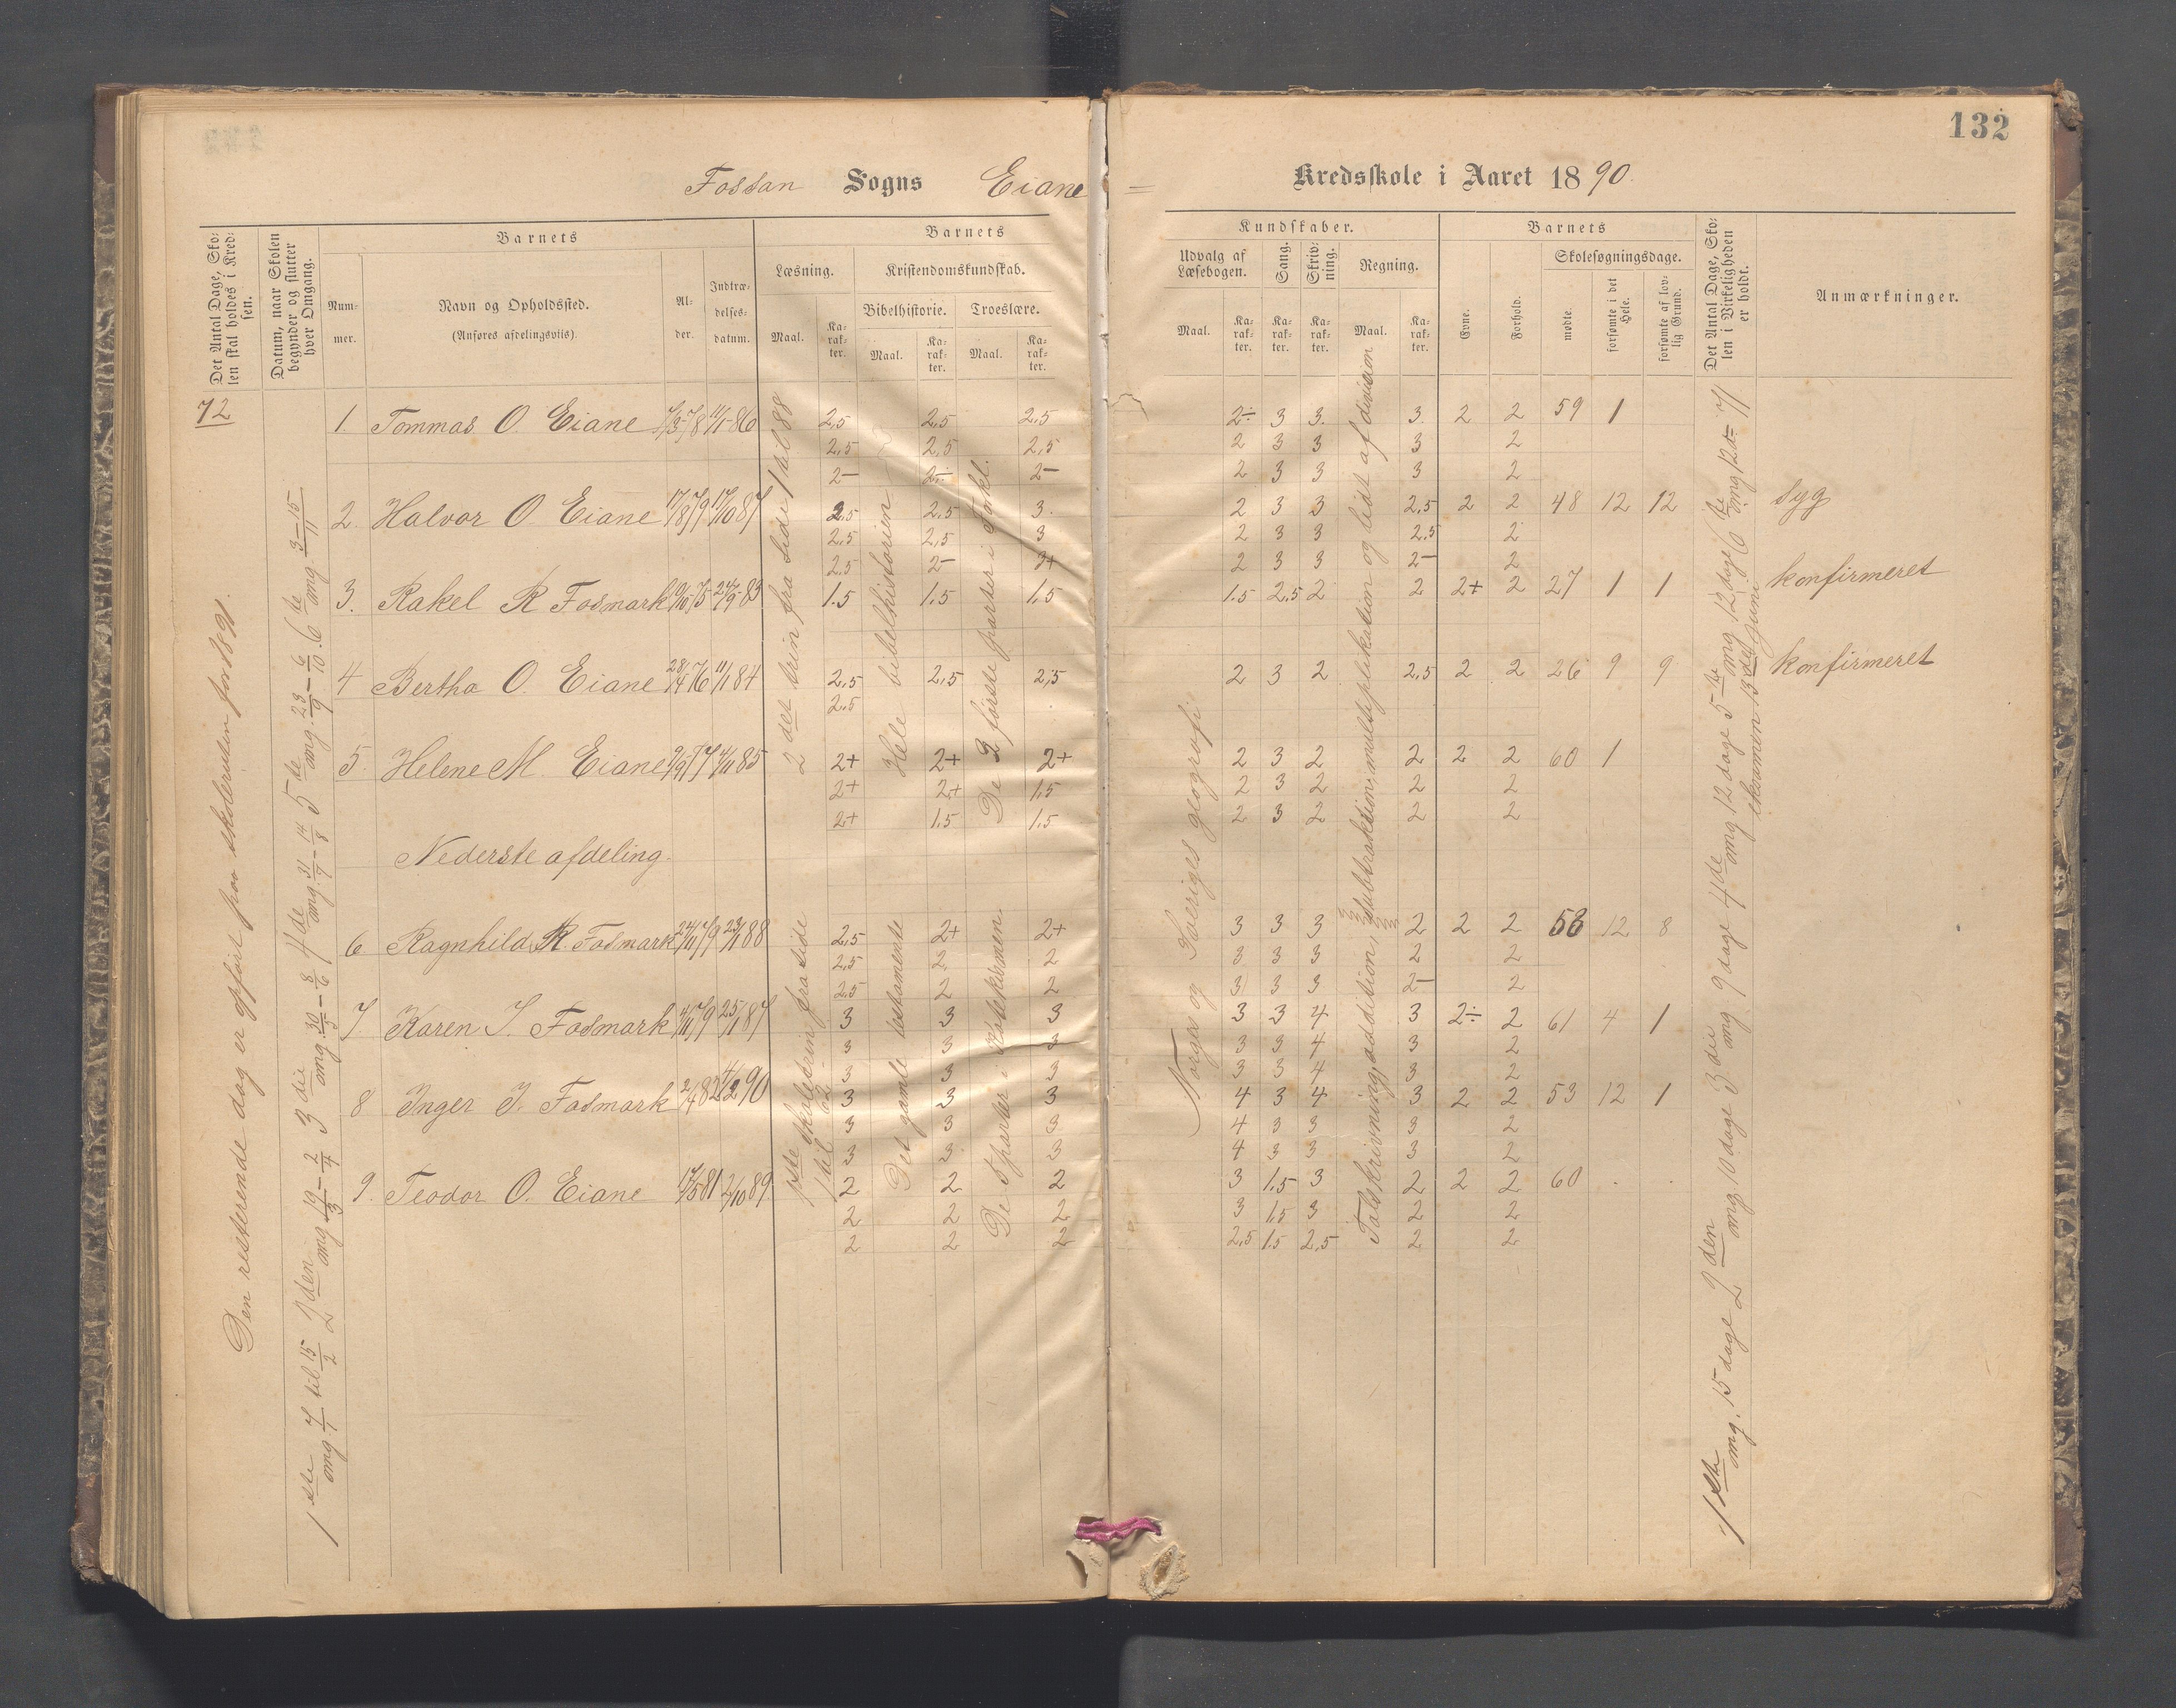 132
Fossan Sogns Eiane
Kredsskole i Aaret 1890
Det Antal Dage, Skolen skal holdes i Kredsen.
Datum, naar Skolen begynder og slutter hver Omgang.
Barnets
Nummer.
Navn og Opholdssted.
(Anføres afdelingsviis).
Alder.
Indtrædelsesdatum.
Barnets
Læsning.
Maal.
Karakter.
Kristendomskundskab.
Bibelhistorie.
Maal.
Karakter.
Troeslære.
Maal.
Karakter.
Kundskaber.
Udvalg af Læsebogen.
Maal.
Karakter.
Sang.
Karakter.
Skrivning.
Karakter.
Regning.
Maal.
Karakter.
Barnets
Evne.
Forhold.
Skolesøgningsdage.
mødte.
forsømte i det Hele.
forsømte af lovlig Grund.
Det Antal Dage, Skolen i Virkeligheden er holdt.
Anmærkninger.
72
Den resterende dag er opført paa skoleruten for 1891.
1ste omg. 7/1 til 15/2 2den omg. 19/3 – 2/4 3die omg. 30/5 – 8/6 4de omg. 31/7 – 14/8 5de omg. 23/9 – 6/10. 6de omg. 3–15/11
2det trin, fra side 1 til 88
Hele bibelhistorien
De 2 første parter i Forkl.
Norges og Sveriges geografi
Talskrivning, addition, subtraktion, multiplikation og lidt af division
1ste omg. 15 dage 2den omg. 10 dage 3die omg. 9 dage 4de omg. 12 dage 5te omg. 12 dage 6te omg. 12 d = 71
eksamen 13de juni
1. Tommas O. Eiane 7/3-78 11/1-86 2,5 2,5 2,5 2÷ 3 3. 3. 2 2 59 1
2,5 2,5 2,5 2 3 3 3 2
2– 2– 2– 2 3 3 3 2
2. Halvor O. Eiane 17/8 79 17/10 87 2.5 2,5 3. 2 3 3 2,5 2 2 48 12 12 syg
2.5 2,5 3 2 3 3 2.5 2
2.5 2– 3+ 2 3 3 2– 2
3. Rakel R Fosmark 10/10 75 24/9-83 1.5 1.5 1,5 1.5 2.5 2 2 2+ 2 27 1 1 konfirmeret
4 Bertha O. Eiane 28/4 76 11/1 84 2,5 2,5 2,5 2 3 2 2,5 2 2 26 9 9 konfirmeret
2.5
5. Helene M. Eiane 9/9 77 4/11 85 2+ 2+ 2+ 2 3 2 2 2 2 60 1
2+ 2+ 1,5 2 3 2 2 2
2+ 1.5 1.5 2 3 2 2 2
Nederste afdeling.
1ste skoletrin fra side 1 til 62
Det gamle testamente
De 5 parter i Katekismen.
6 Ragnhild R. Fosmark 24/11 79 23/1 88 2,5 2+ 2+ 3 3 3 2 2 2 58 12 8
2,5 2 2 3 3 3 2 2
2.5 2 2 3 3 3 2– 2
7 Karen I. Fosmark 4/11 79 25/1 87 3 3 3 3 3 4 3 2÷ 2 61 4 1
3 3 3 3 3 4 3 2
3 3 3 3 3 4 3 2
8 Inger I. Fosmark 2/4 82 4/2 90 3 3 3 4 3 4 3 2 2 53 12 1
3 3 3 4 3 3 3 2
3 3 3 4 3 3 3 2
9. Teodor O. Eiane 17/5 81 2/10 89 2 2 2 3 1,5 3 2 2 2 60
2 2 2 3 1,5 3 2 2
2 2 2 2,5 1.5 2,5 2 2